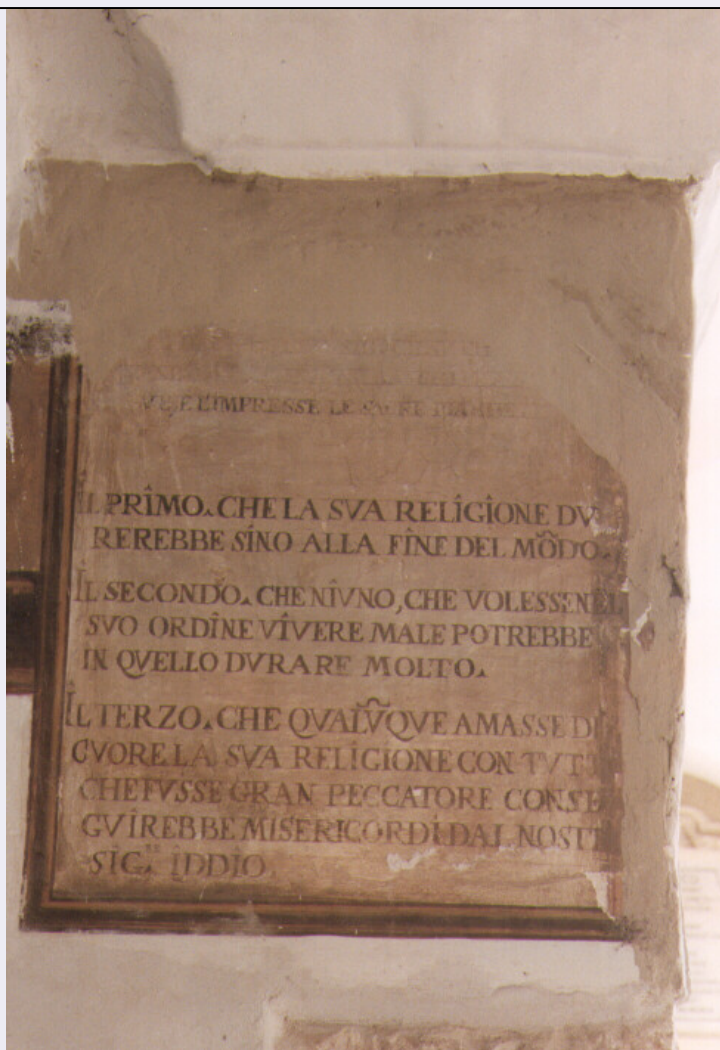 L'IMPRESSE LE
IL PRIMO. CHE LA SVA RELIGIONE DV
REREBBE SINO ALLA FINE DEL MÕDO.
IL SECONDO. CHE NIVNO, CHE VOLESSE NEL
SVO ORDINE VIVERE MALE POTREBBE
IN QVELLO DVRARE MOLTO.
IL TERZO. CHE QVALVÑQVE AMASSE DI
CVORE LA SVA RELIGIONE CON TVT
CHE FVSSE GRAN PECCATORE CONSE
GVIREBBE MISERICORDI DAL NOST
SIG.RE IDDIO